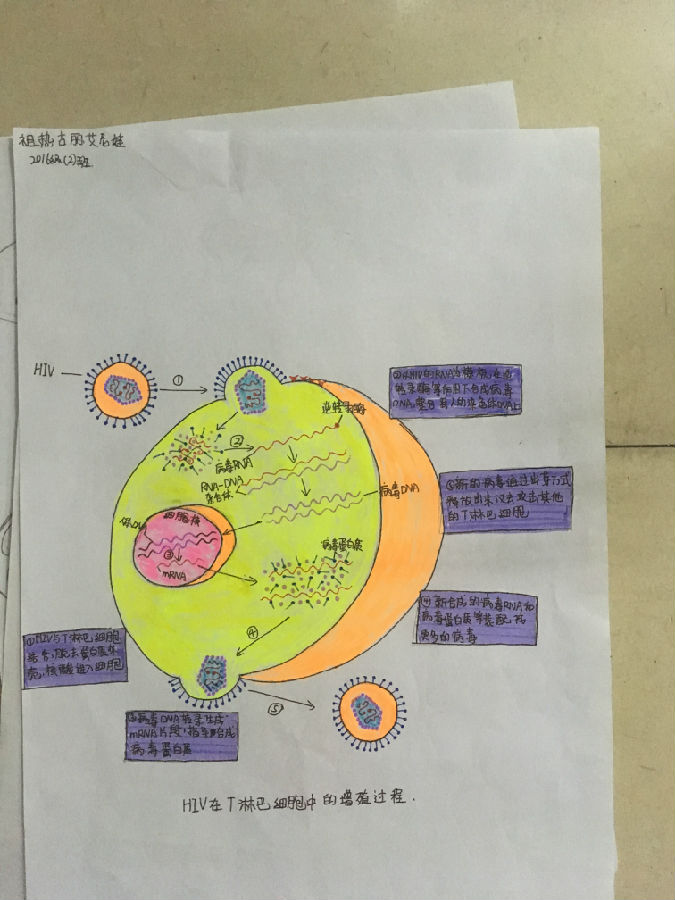 祖热古丽艾尼娃
2016级(2)班
HIV
①
②以HIV的RNA为模板,在逆
转录酶等作用下合成病毒
DNA,整合到人的染色体DNA上
逆转录酶
②
病毒RNA
RNA-DNA
杂合体
病毒DNA
⑤新的病毒通过出芽方式
释放出来,以去攻击其他
的T淋巴细胞
细胞核
③
mRNA
病毒蛋白质
④新合成的病毒RNA和
病毒蛋白质等装配成
更多的病毒
④
①HIV与T淋巴细胞
结合,脱去蛋白质外
壳,核酸进入细胞
⑤
③病毒DNA转录生成
mRNA片段,指导合成
病毒蛋白质
HIV在T淋巴细胞中的增殖过程.